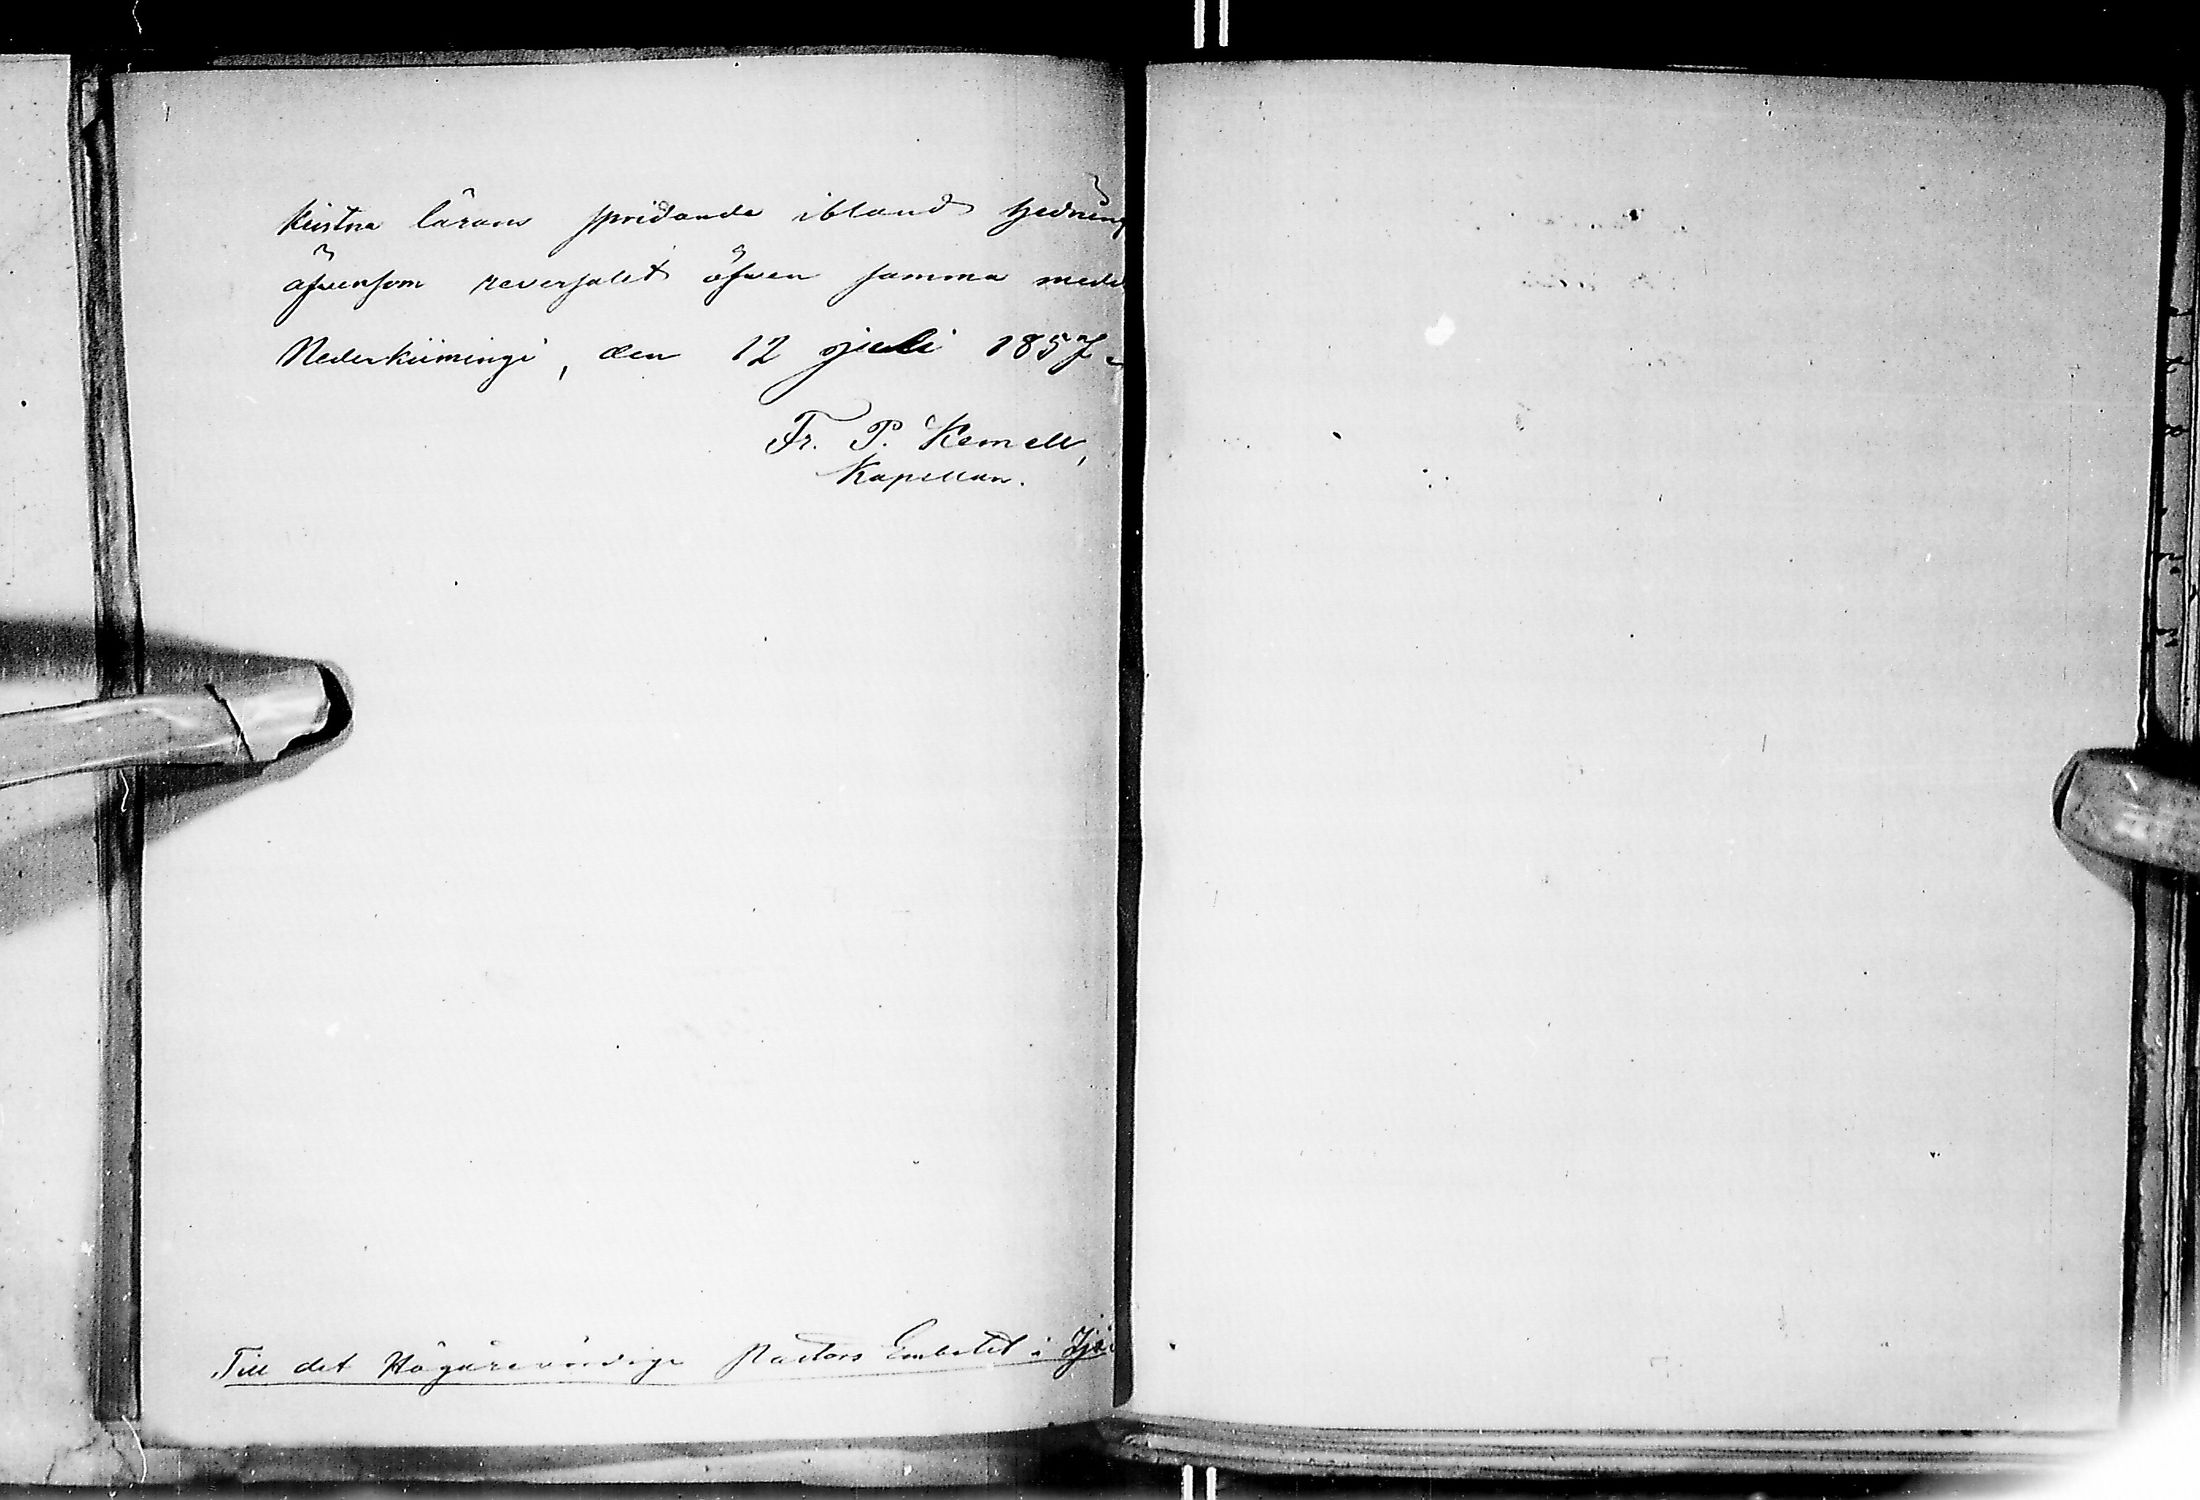 kristna lärans spridande ibland hedning
äfvensom reversalet öfver samma medel
Nederkiimingi, den 12 juli 1857.
Fr. P. Kemell,
Kapellan.
Till det Högärevördige Pastors Embetet i Ijo